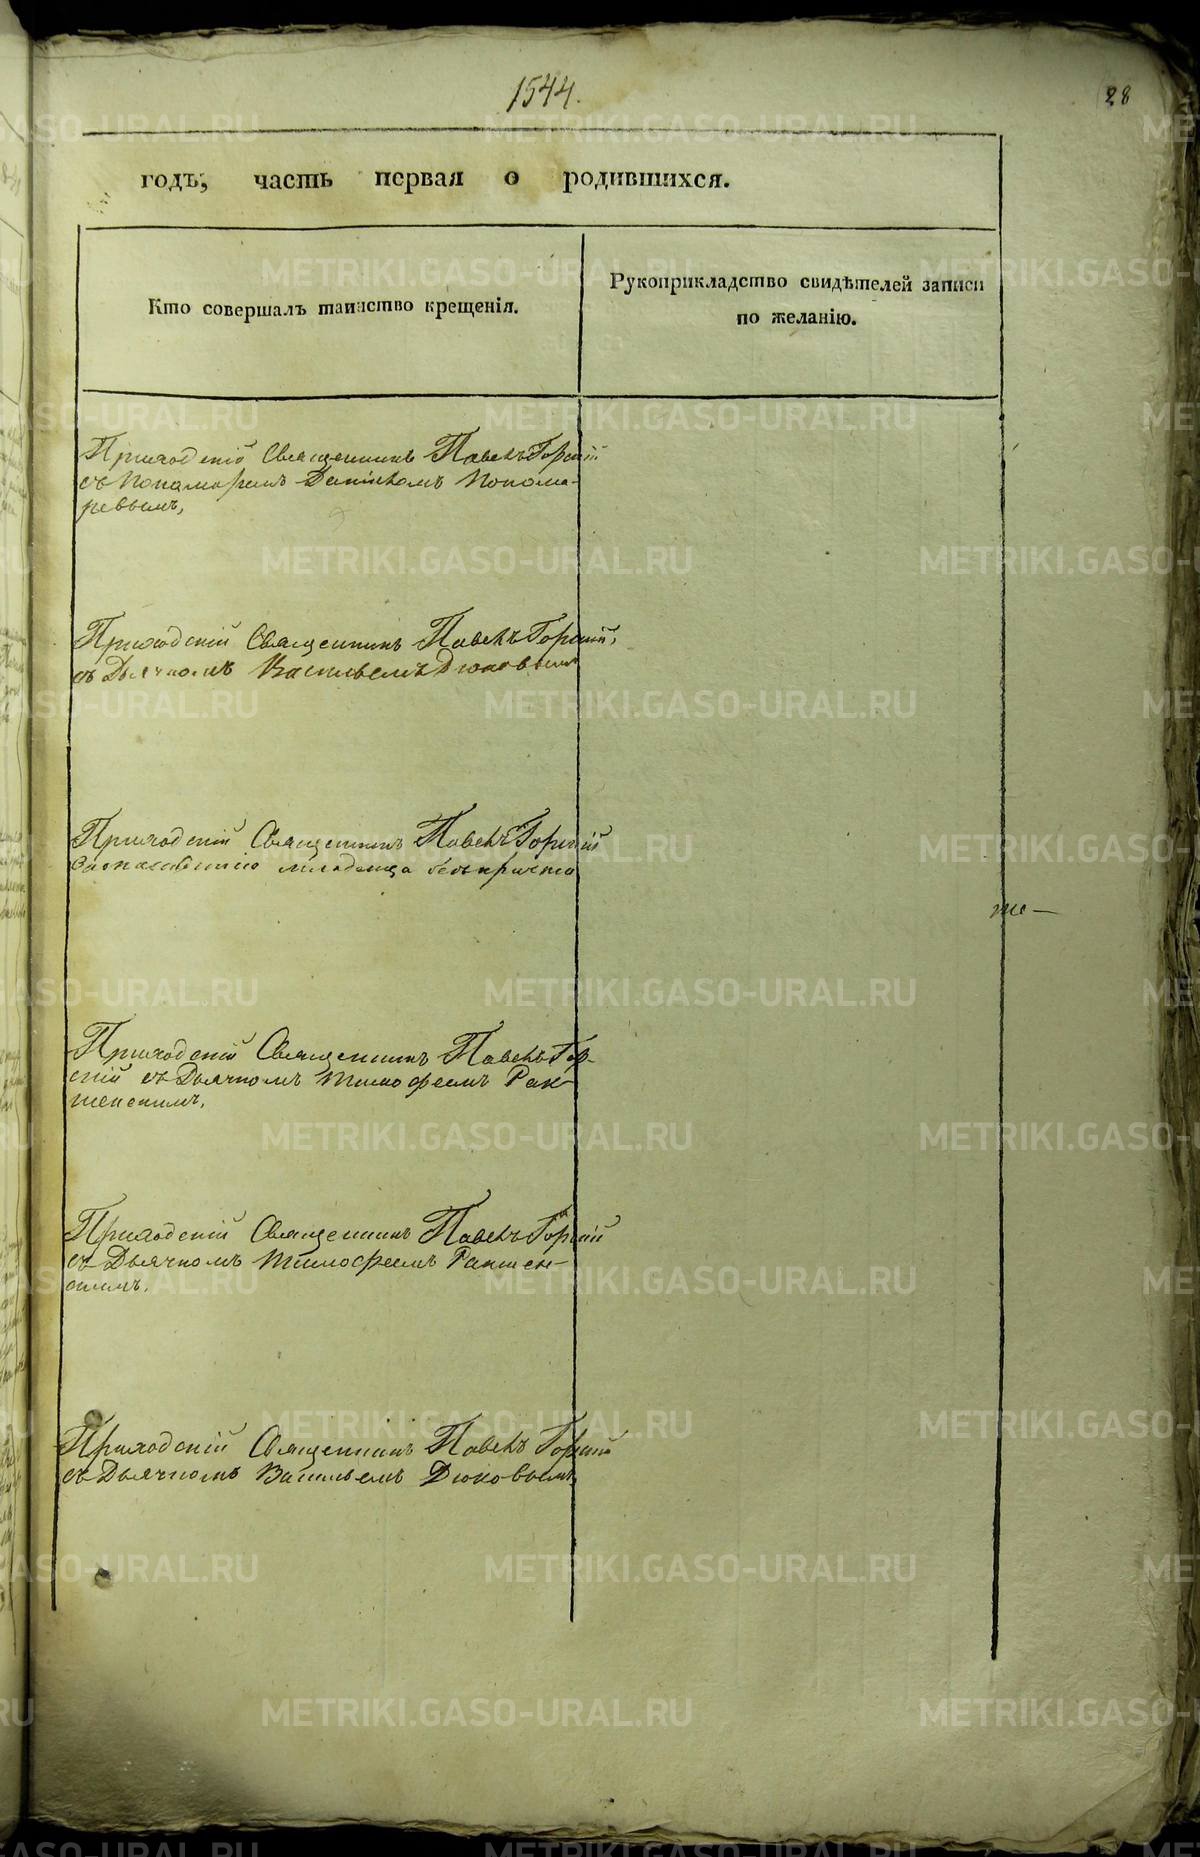 1544.
28
годъ, часть первая о родившихся.
Кто совершалъ таинство крещенія.
Рукоприкладство свидѣтелей записи
по желанію.
Приходскій Священникъ Павелъ Горскій
съ Пономаремъ Пономa-
ревымъ,
Приходскій Священникъ Павелъ Горскій,
съ Дьячкомъ Васильемъ Дюковымъ
Приходскій Священникъ Павелъ Горскій
младенца безъ причта
Приходскій Священникъ Павелъ Гор-
скій съ Дьячкомъ Тимофеемъ
Приходскій Священникъ Павелъ Горскій
съ Дьячкомъ Тимофеемъ
Приходскій Священникъ Павелъ Горскій
съ Дьячкомъ Васильемъ Дюковымъ
METRIKI.GASO-URAL.RU